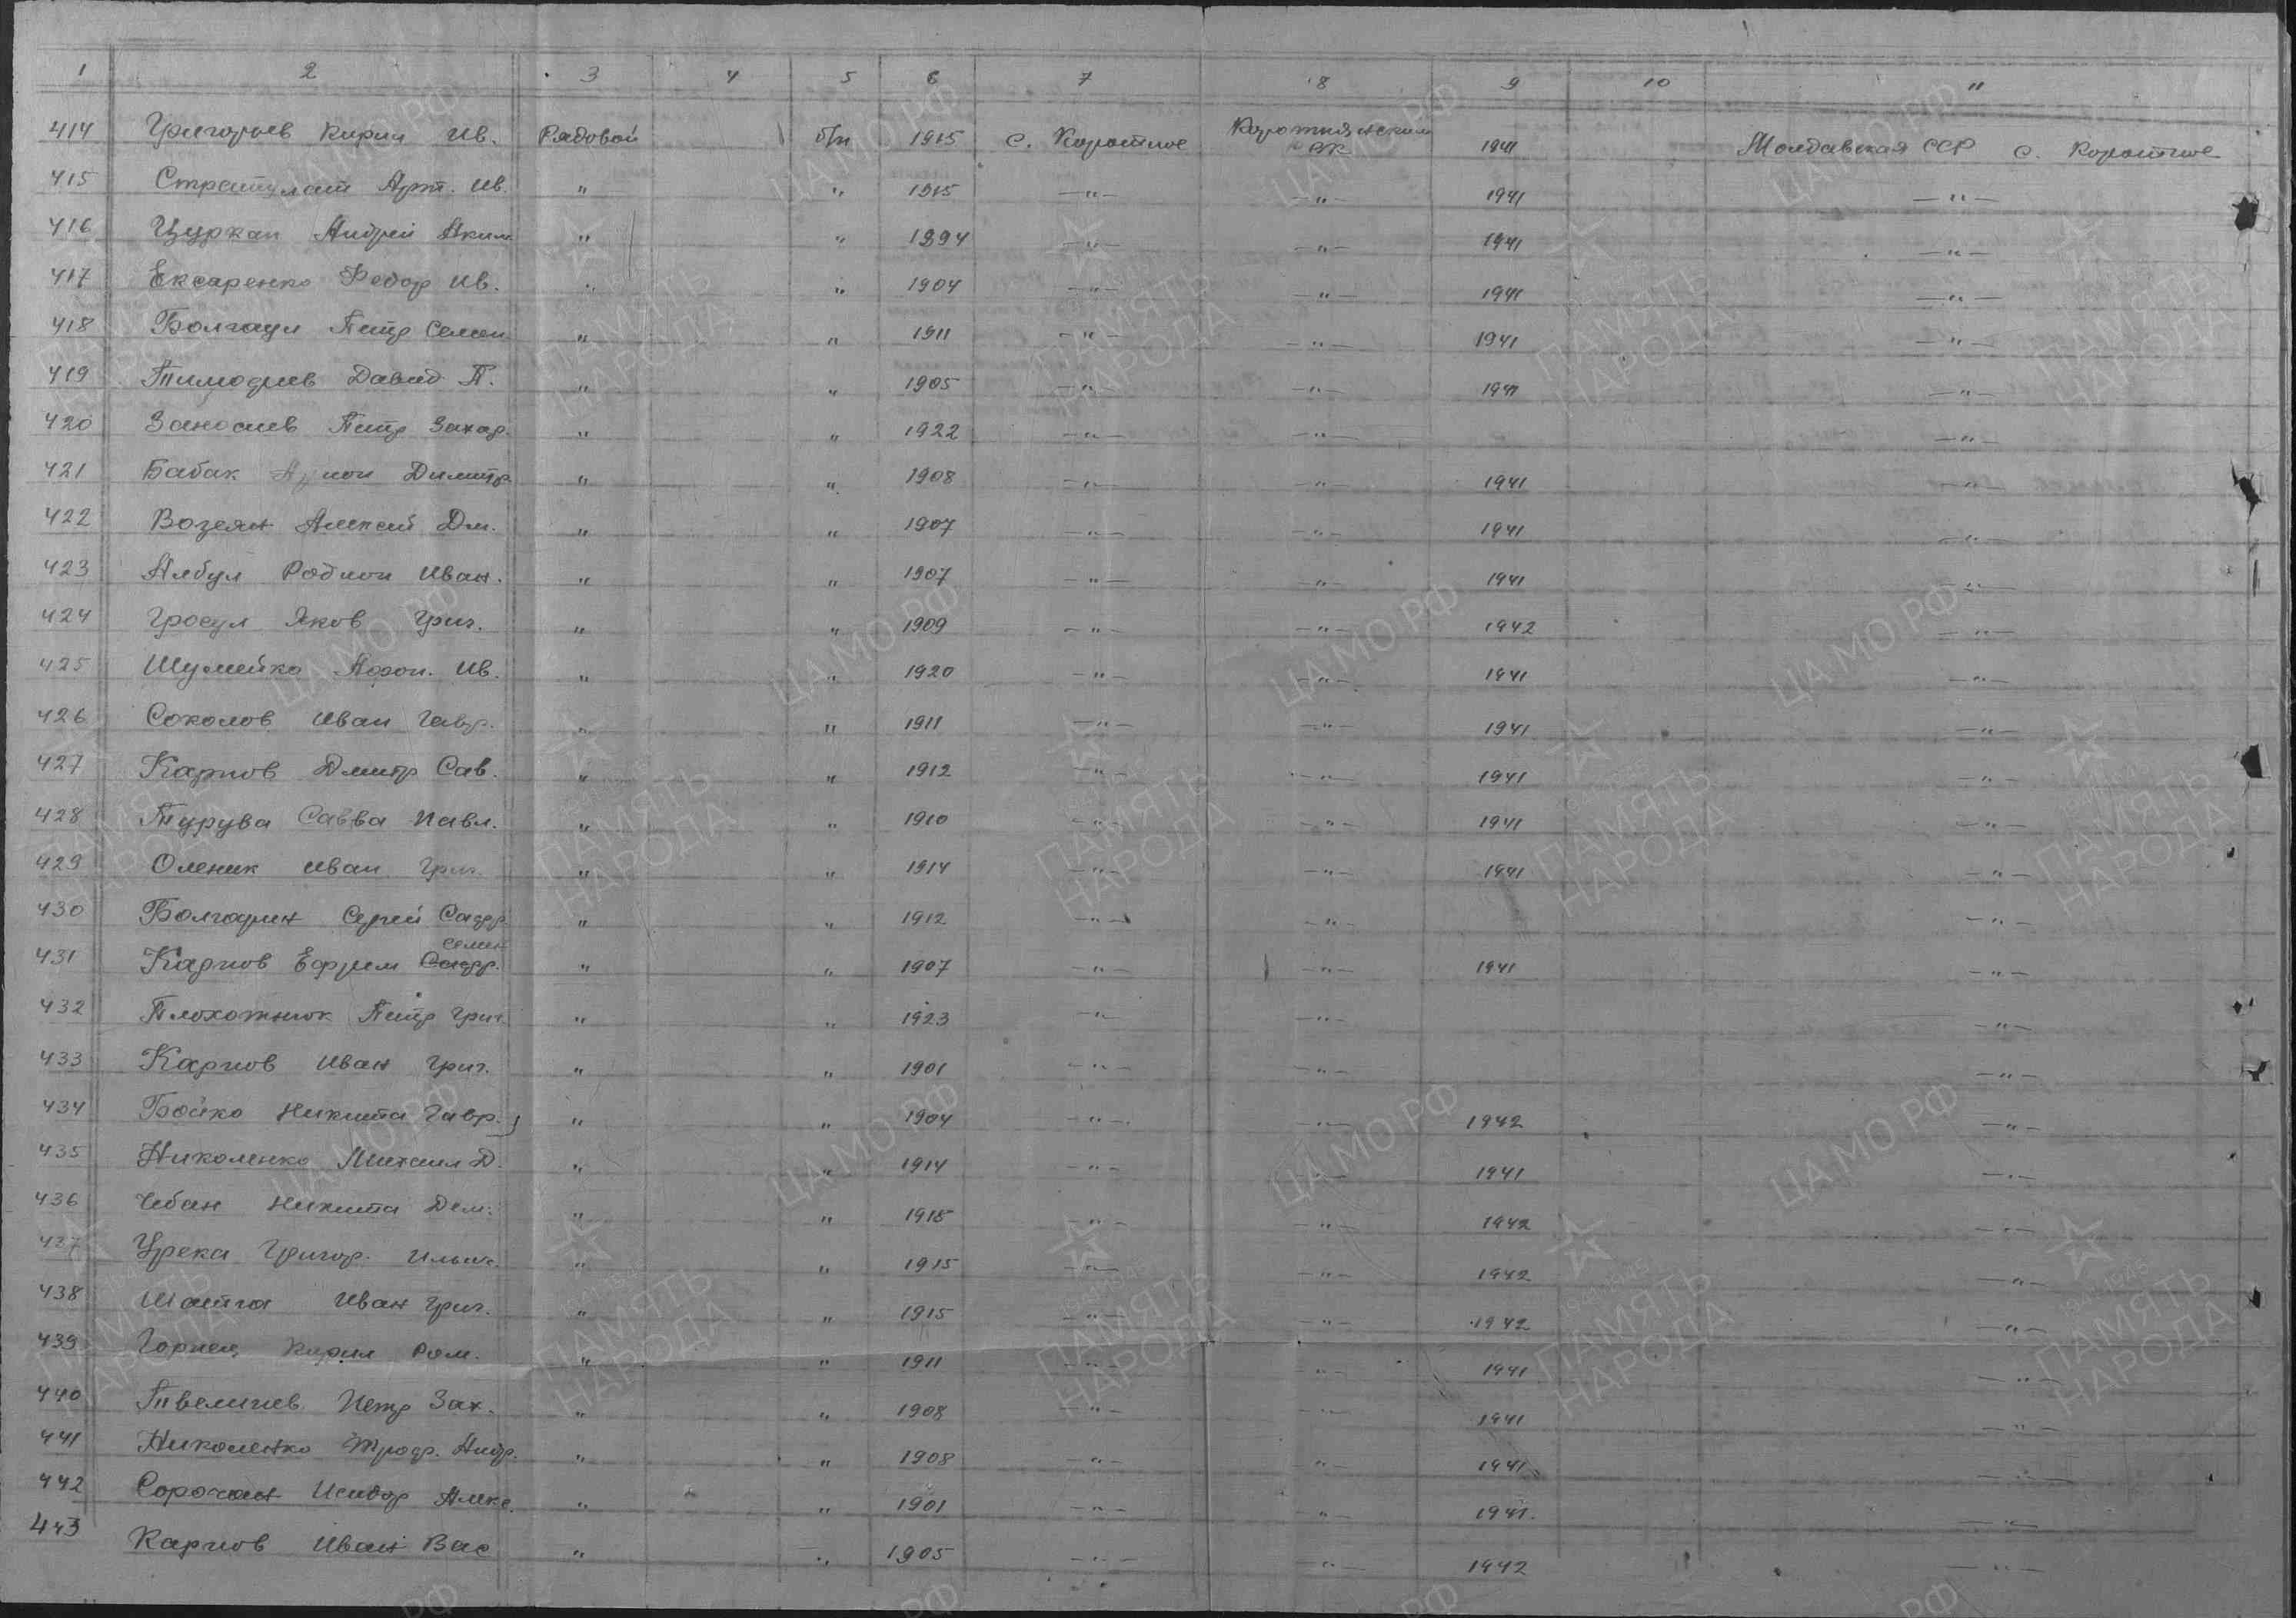 1 2 3 4 5 6 7 8 9 10 11
414 Григорьев Кирил Ив. Рядовой б/п 1915 с. Коротное Коротнянским РК 1941 Молдавская ССР с. Коротное
415 Стратулат Арт. Ив. " " 1915 —"— —"— 1941 —"—
416 Цуркан Андрей Аким " " 1894 —"— —"— 1941 —"—
417 Ексаренко Федор Ив. " " 1904 —"— —"— 1941 —"—
418 Петр Семен " " 1911 —"— —"— 1941 —"—
419 Тимофиев Давид П. " " 1905 —"— —"— 1941 —"—
420 Петр Захар. " " 1922 —"— —"— —"—
421 Бабак Димитр. " " 1908 —"— —"— 1941 —"—
422 Возеян Алексей Дм. " " 1907 —"— —"— 1941 —"—
423 Албул Родион Иван. " " 1907 —"— —"— 1941 —"—
424 Гросул Яков Григ. " " 1909 —"— —"— 1942 —"—
425 Шумейко Афон. Ив. " " 1920 —"— —"— 1941 —"—
426 Соколов Иван Гавр. " " 1911 —"— —"— 1941 —"—
427 Карпов Дмитр Сав. " " 1912 —"— —"— 1941 —"—
428 Турува Савва Павл. " " 1910 —"— —"— 1941 —"—
429 Оленик Иван Григ. " " 1914 —"— —"— 1941 —"—
430 Болгарин Сергей " " 1912 —"— —"— —"—
Семен
431 Карпов Ефрем " " 1907 —"— —"— 1941 —"—
432 Плохотнюк Петр Григ. " " 1923 —"— —"— —"—
433 Карпов Иван Григ. " " 1901 —"— —"— —"—
434 Бойко Никита Гавр. " " 1904 —"— —"— 1942 —"—
435 Николенко Михаил Д. " " 1914 —"— —"— 1941 —"—
436 Чебан Никита Дем. " " 1915 —"— —"— 1942 —"—
437 Урека Григор. Ильич. " " 1915 —"— —"— 1942 —"—
438 Иван Григ. " " 1915 —"— —"— 1942 —"—
439 Кирил Ром. " " 1911 —"— —"— 1941 —"—
440 Петр Зах. " " 1908 —"— —"— 1941 —"—
441 Николенко Троф. Андр. " " 1908 —"— —"— 1941 —"—
442 Сорочан Исидор Алекс. " " 1901 —"— —"— 1941 —"—
443 Карпов Иван Вас " " 1905 —"— —"— 1942 —"—
ЦАМО.РФ
ПАМЯТЬ
НАРОДА
1941-1945